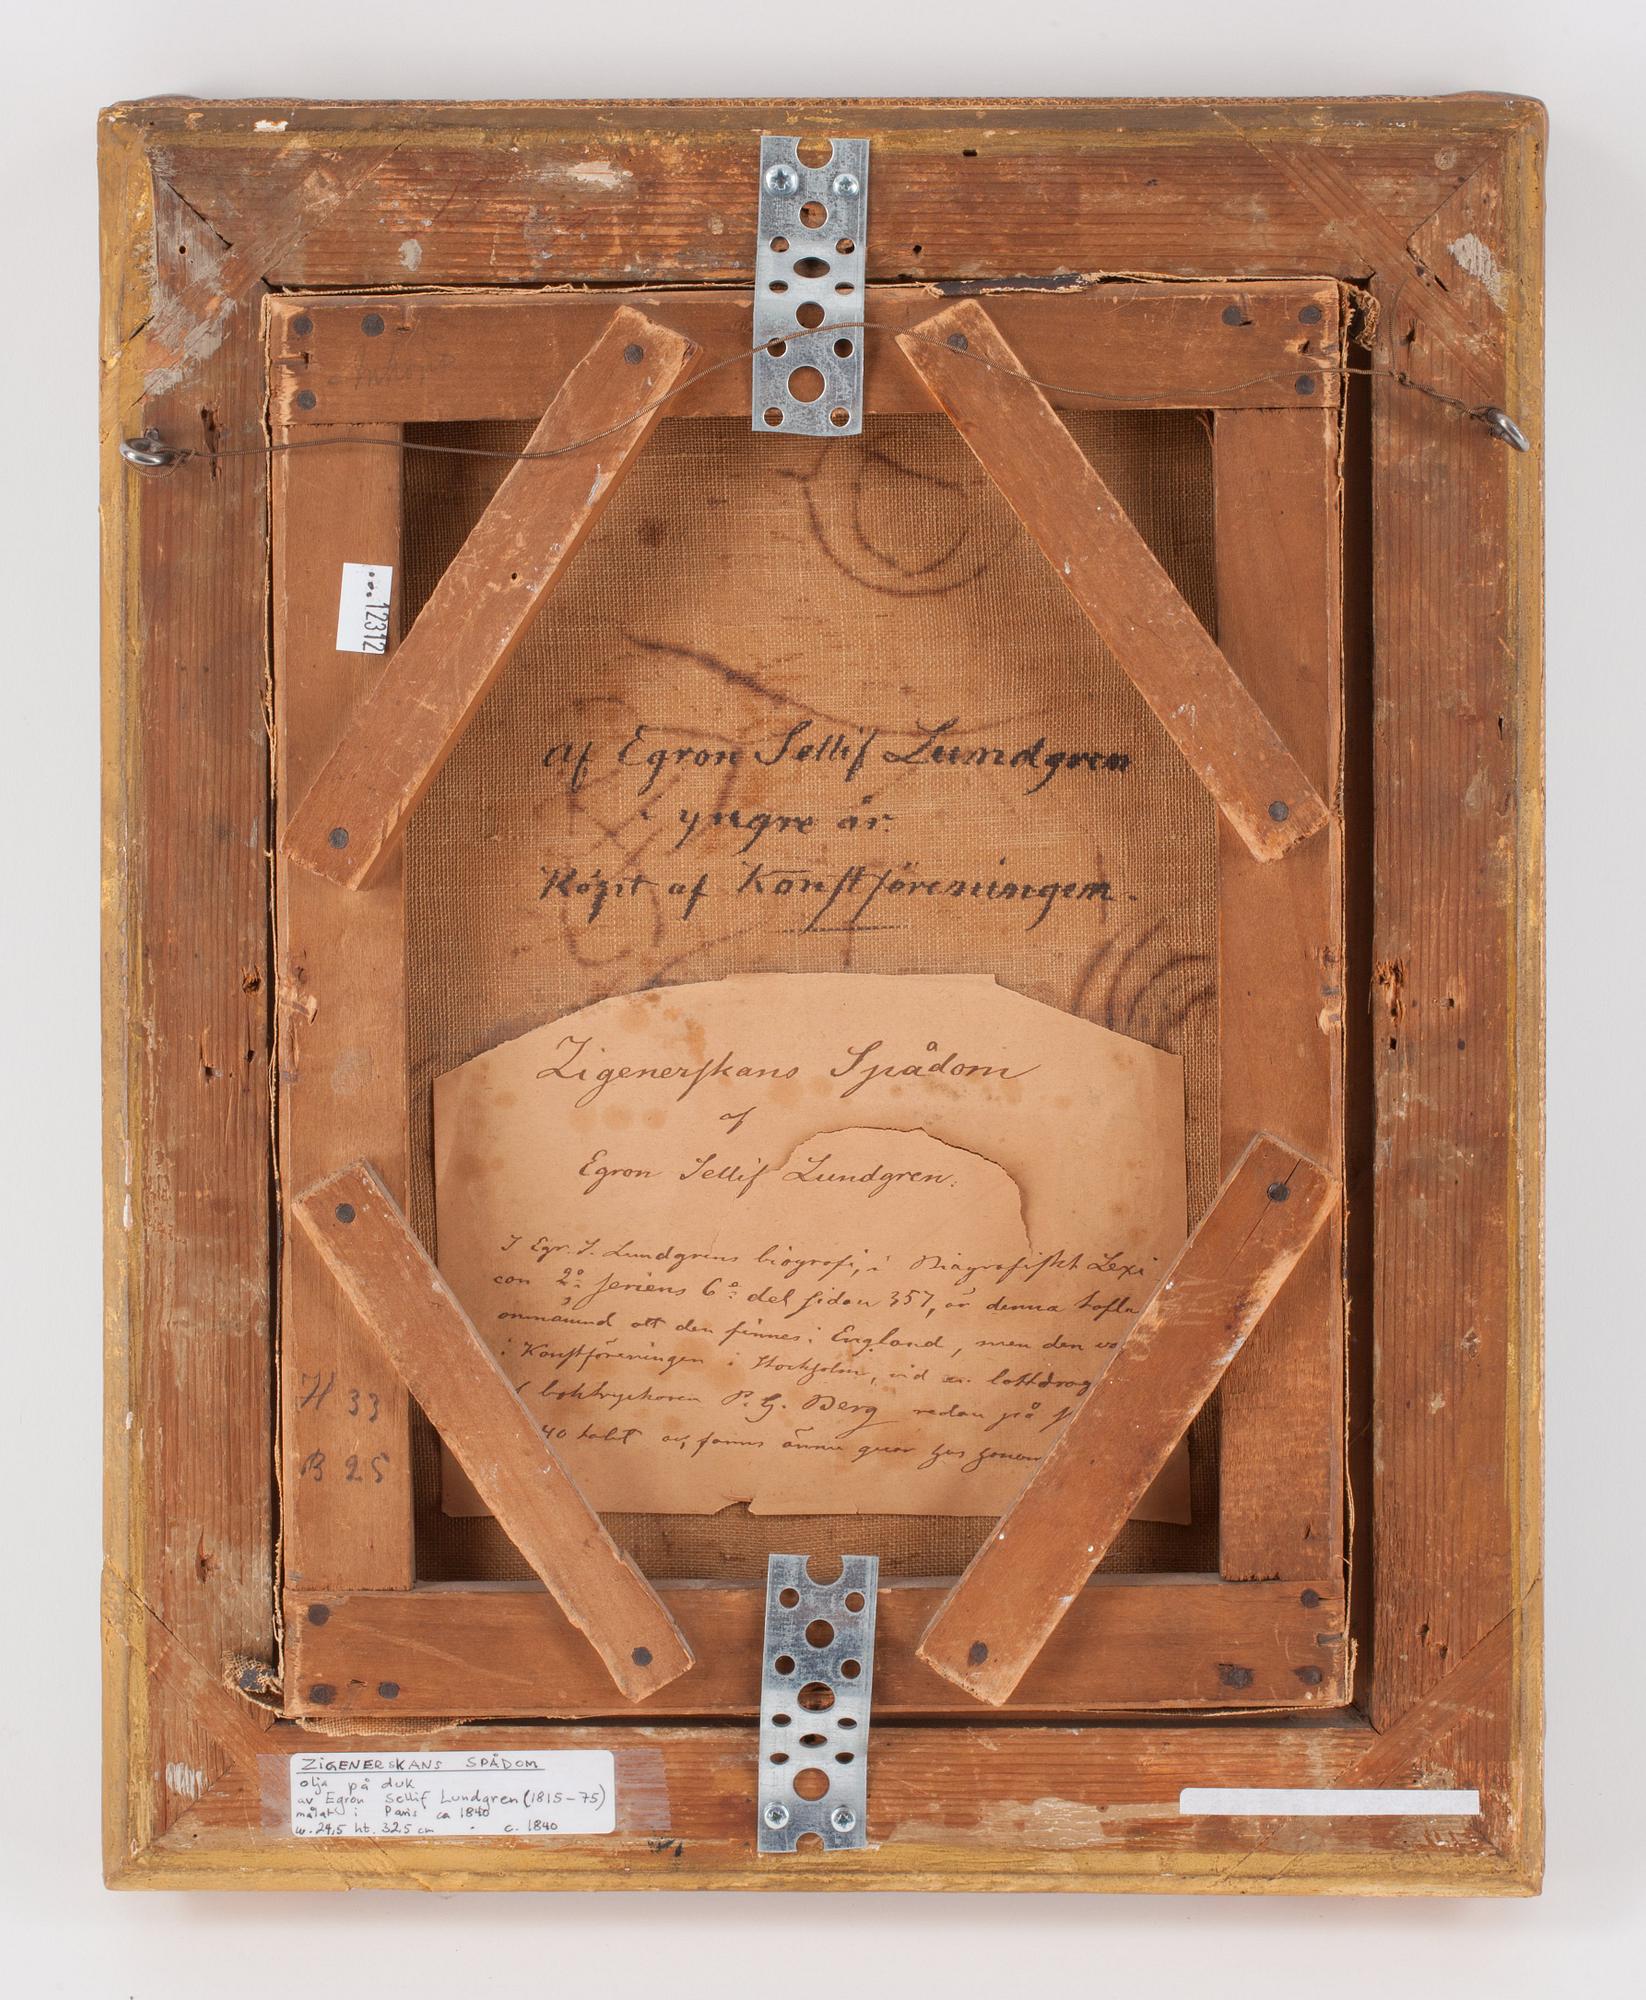 12312
af Egron Sellif Lundgren
i yngre år.
Köpt af Konstföreningen.
Zigenerskans Spådom
af
Egron Sellif Lundgren.
I Egr. S. Lundgrens biografi, i Biografiskt Lexi
con 2º seriens 6º del sidan 357, är denna tafla
omnämnd att den finnes i England, men den
i Konstföreningen i Stockholm, vid lottdrag
boktryckaren P. G. Berg redan på
40 talet och fanns ännu qvar hos
H 33
B 25
ZIGENERSKANS SPÅDOM
olja på duk
av Egron Sellif Lundgren (1815-75)
målat i Paris ca 1840
w. 24,5 ht. 32,5 cm c. 1840